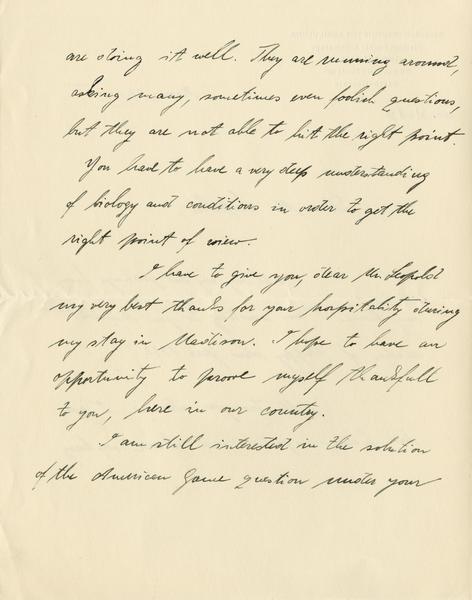 are doing it well. They are running around,
asking many, sometimes even foolish questions,
but they are not able to hit the right point.
You have to have a very deep understanding
of biology and conditions in order to get the
right point of view.
I have to give you, dear Mr. Leopold
my very best thanks for your hospitality during
my stay in Madison. I hope to have an
opportunity to proove myself thankfull
to you, here in our country.
I am still interested in the solution
of the American Game question under your